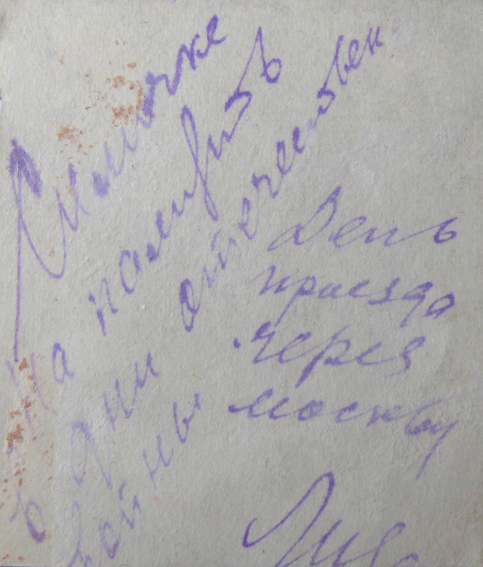 на память
в дни отечествен.
войны.
День
приезда
через
Москву